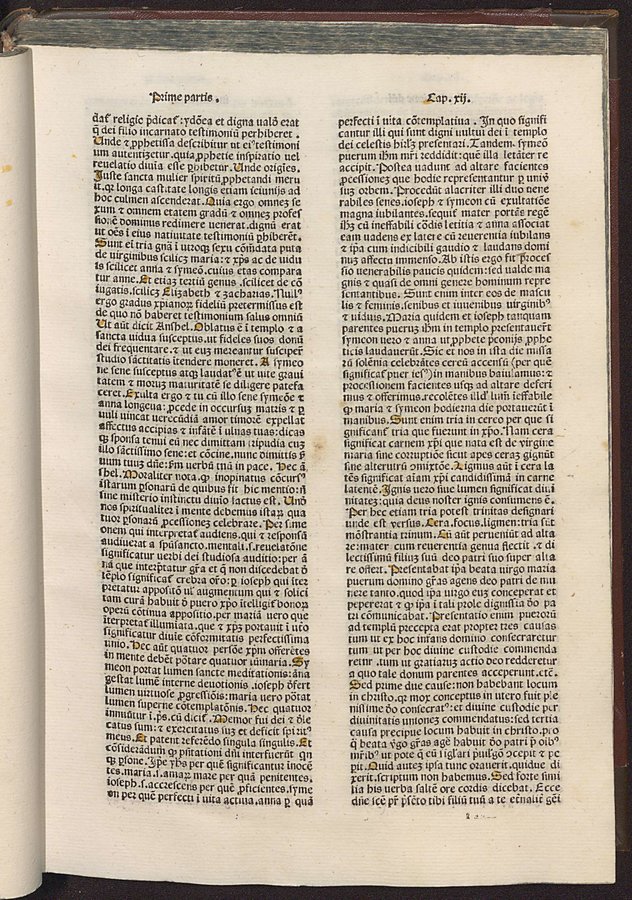 Prime partis .
Cap. xij.
dat religiõe p̃dicat: ydõea et digna ualõ erat
q̃ dei filio incarnato testimoniũ perhiberet .
Unde ⁊ ꝓphetissa describitur ut ei testimoni
um autentizetur. quia ꝓphetie inspiratio uel
reuelatio diuĩa esse ꝑhibetur. Unde origĩes.
Juste sancta mulier spiritũ ꝓphetandi meru
it. qꝛ longa castitate longis etiam ieiunijs ad
hoc culmen ascenderat. Quia ergo omneʒ se
xum ⁊ omnem etatem gradũ ⁊ omneʒ profes
sionẽ dominus redimere uenerat. dignũ erat
ut oẽs i eius natiuitate testimoniũ ꝑhiberẽt.
Sunt eĩ tria gñã i utroqʒ sexu cõmẽdata puta
de uirginibus scilicʒ maria: ⁊ xp̃s ac de uidu
is scilicet anna ⁊ symeõ. cuius etas compara
tur anne. Et etiaʒ tertiũ genus . scilicet de cõ
iugatis. scilicʒ Elizabeth ⁊ zacharias. Null9
ergo gradus xp̃ianoꝝ fideliũ pretermissus est
de quo nõ haberet testimonium salus omniũ
Ut aũt dicit Anshel. Oblatus ẽ ĩ templo ⁊ a
sancta uidua susceptus. ut fideles suos domũ
dei frequentare. ⁊ ut eũʒ mereantur susciperʼ
studio sãctitatis itendere moneret. A symeo
ne sene susceptus atqʒ laudatʼẽ ut uite graui
tatem ⁊ moruʒ maturitatẽ se diligere patefa
ceret. Exulta ergo ⁊ tu cũ illo sene symeõe ⁊
anna longeua: ꝓcede in occursuʒ matris ⁊ ꝑ
uuli uincat uerecũdiã amor timorẽ expellat
affectus accipias ⁊ infãtẽ ĩ ulnas tuas: dicas
qʒ sponsa tenui eũ nec dimittam
illo sãctissimo sene: et cõcine. nunc dimittis
uum tuuʒ dñe: ẽm uerbũ tuũ in pace.
shel. Moraliter nota. qꝛ inopinatus cõcursʼ
istarum ꝑsonarũ de quibus sit hic mentio: nõ
sine misterio instinctu diuĩo factus est. Unõ
nos spiritualiter ĩ mente debemus istaꝝ qua
tuor ꝑsonarũ ꝓcessioneʒ celebrare. Per sime
onem qui interpretatʼ audiens. qui ⁊ responsã
audiuerat a spũsancto. mentali. s. reuelatõne
significatur uerbi dei studiosa auditio: per ã
nã que interp̃tatur gr̃a et q̃ non discedebat õ
tẽplo significat̃ crebra orõ: ꝑ ioseph qui iter
pretatur appositõ ulʼ augmentum qui ⁊ solici
tam curã habuit õ puero xp̃o ĩtelligit̃ bonoꝝ
operũ cõtinua appositio. per mariã uero que
ĩterpretatʼ illumiata. que ⁊ xp̃ʒ portauit ĩ uto
significatur diuĩe cõformitatis perfectissima
unio. Hec aũt quatuor persõe xp̃m offerẽtes
in mente debẽt põtare quatuor lũinaria. Sy
meon portat lumen sancte meditationis: ãna
gestat lumẽ interne deuotionis. ioseph õfert
lumen uirtuose ꝓgressiõis: maria uero põtat
lumen superne cõtemplatõnis. Hec quatuor
innuũtur ĩ .ps. cũ dicit̃. Memor fui dei ⁊ õle
catus sum: ⁊ exercitatus suʒ et deficit spiritʼ
meus. Et patent referẽdo singula singulis. Et
cõsiderãdum qʒ pñtationi dñi interfuerũt qn
qʒ ꝑsone. Ipe yhs per quẽ significantur inocẽ
tes. maria. i. amaꝝ mare per quã penitentes.
ioseph. s. accrescens per quẽ ꝓficientes. syme
on per quẽ perfecti ĩ uita actiua. anna ꝑ quã
perfecti ĩ uita cõtemplatiua . In quo signifi
cantur illi qui sunt digni uultui dei ĩ templo
dei celestis hirlʒ presentari. Tandem symeõ
puerum ihm mr̃i reddidit: quẽ illa letãter re
accipit. Postea uadunt ad altare facientes
ꝓcessioneʒ que hodie representantur ꝑ uniuer
suʒ orbem. Procedũt alacriter illi duo uene
rabiles senes. ioseph ⁊ symeon cũ exultatiõe
magna iubilantes. sequit̃ mater portãs regẽ
ihʒ cũ ineffabili cõdis letitia ⁊ anna associat
eam uadens ex latere cũ reuerentia iubilans
⁊ ĩpa cum indicibili gaudio ⁊ laudans domi
nuʒ affectu immenso. Ab istis ergo fit ꝓces
sio uenerabilis paucis quidem: sed ualde ma
gnis ⁊ quasi de omni genere hominum repre
sentantibus . Sunt enim inter eos de mascu
lis ⁊ feminis. senibus et iuuenibus uirginibʼ
⁊ uiduis. Maria quidem et ioseph tanquam
parentes pueruʒ ihm in templo presentauerũt
symeon uero ⁊ anna ut ꝓphete preonijs ꝓphe
ticis laudauerũt. Sic et nos in ista die missa
rũ solẽnia celebrãtes cereũ accensũ (per quẽ
significat̃ puer iesʼ) in manibus baiulamus: ⁊
processionem facientes usqʒ ad altare deferi
mus ⁊ offerimus. recolẽtes illđ lumĩ ĩeffabile
qʒ maria ⁊ symeon hodierna die portauerũt ĩ
manibus. Sunt enim tria in cereo per que si
gnificant̃ tria que fuerunt in xp̃o. Nam cera
significat carnem xp̃i que nata est de uirgĩe
maria sine corruptiõe sicut apes ceraʒ gignũt
sine alterutrũ õmixtõe. Lignius aũt ĩ cera la
tẽs significat aĩam xp̃i candidissimã in carne
latentẽ. Ignis uero siue lumen significat diuĩ
nitateʒ: quia deus noster ignis consumens ẽ.
Per hec etiam tria potest trinitas designari
unde est versus. Cera. focus. lignem: tria sũt
mõstrantia trinum. Cũ aũt perueniũt ad alta
re: mater cum reuerentia genua flectit ⁊ di
lectissimũ filiuʒ suũ deo patri suo super alta
re offert. Presentabat ipa beata uirgo maria
puerum domino gr̃as agens deo patri de mu
nere tanto. quod ipa uirgo eũʒ conceperat et
pepererat ⁊ qʒ ipa ĩ tali prole dignissĩa õo pa
tri cõmunicabat. Presentatio enim puerorũ
ad templũ precepta erat propter tres causas
tum ut ex hoc infans domino consecraretur
tum ut per hoc diuine custodie commenda
retur .tum ut gratiaruʒ actio deo redderetur
a quo tale donum parentes acceperunt. ctẽ.
Sed prime due cause: non habebant locum
in christo. qꝛ mox conceptus in utero fuit ple
nissime õo consecratʼ: et diuine custodie per
diuinitatis unioneʒ commendatus: sed tertia
causa precipue locum habuit in christo. pro
q̃ beata v̾go gr̃as agẽ habuit õo patri ꝓ oibʼ
mr̃ibʼ ut pote q̃ eũ
pit . Quid autez ipsa tunc orauerit. quidue di
xerit. scriptum non habemus. Sed forte simi
lia his uerba saltẽ ore cordis dicebat. Ecce
dñe scẽ pr̃ p̃sẽto tibi filiũ tuũ a te et̃nalit̃ gẽi